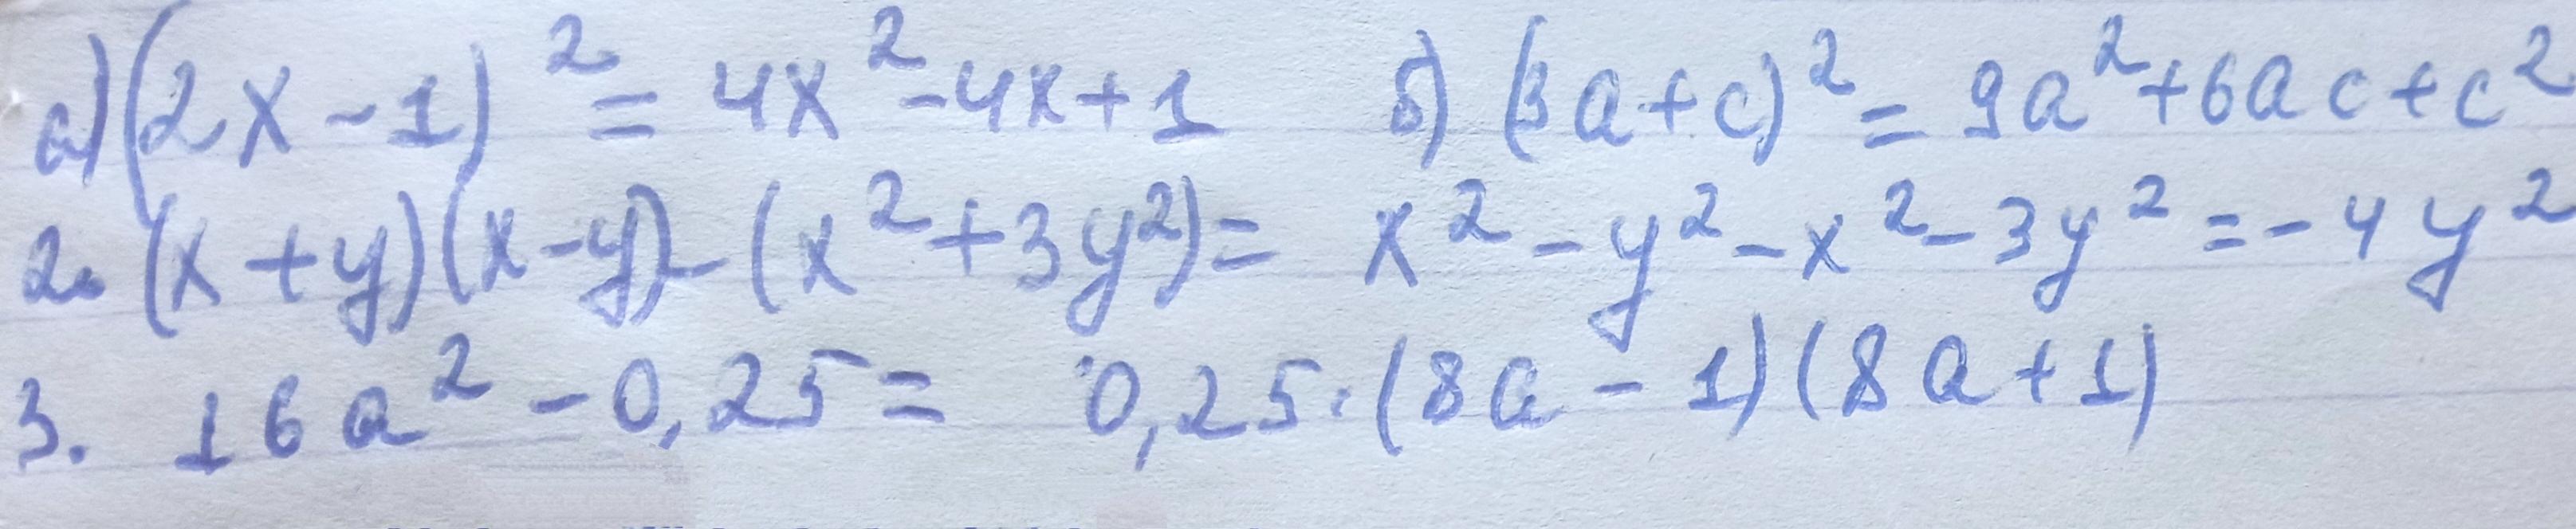 а) (2x-1)² = 4x²-4x+1 б) (3a+c)² = 9a²+6ac+c²
2. (x+y)(x-y)-(x²+3y²)= x²-y²-x²-3y²=-4y²
3. 16a²-0,25= 0,25·(8a-1)(8a+1)